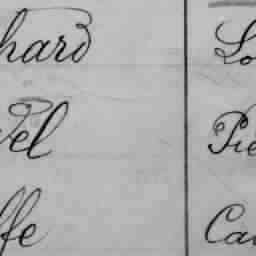 hard Lo
vel Pie
ffe Ca